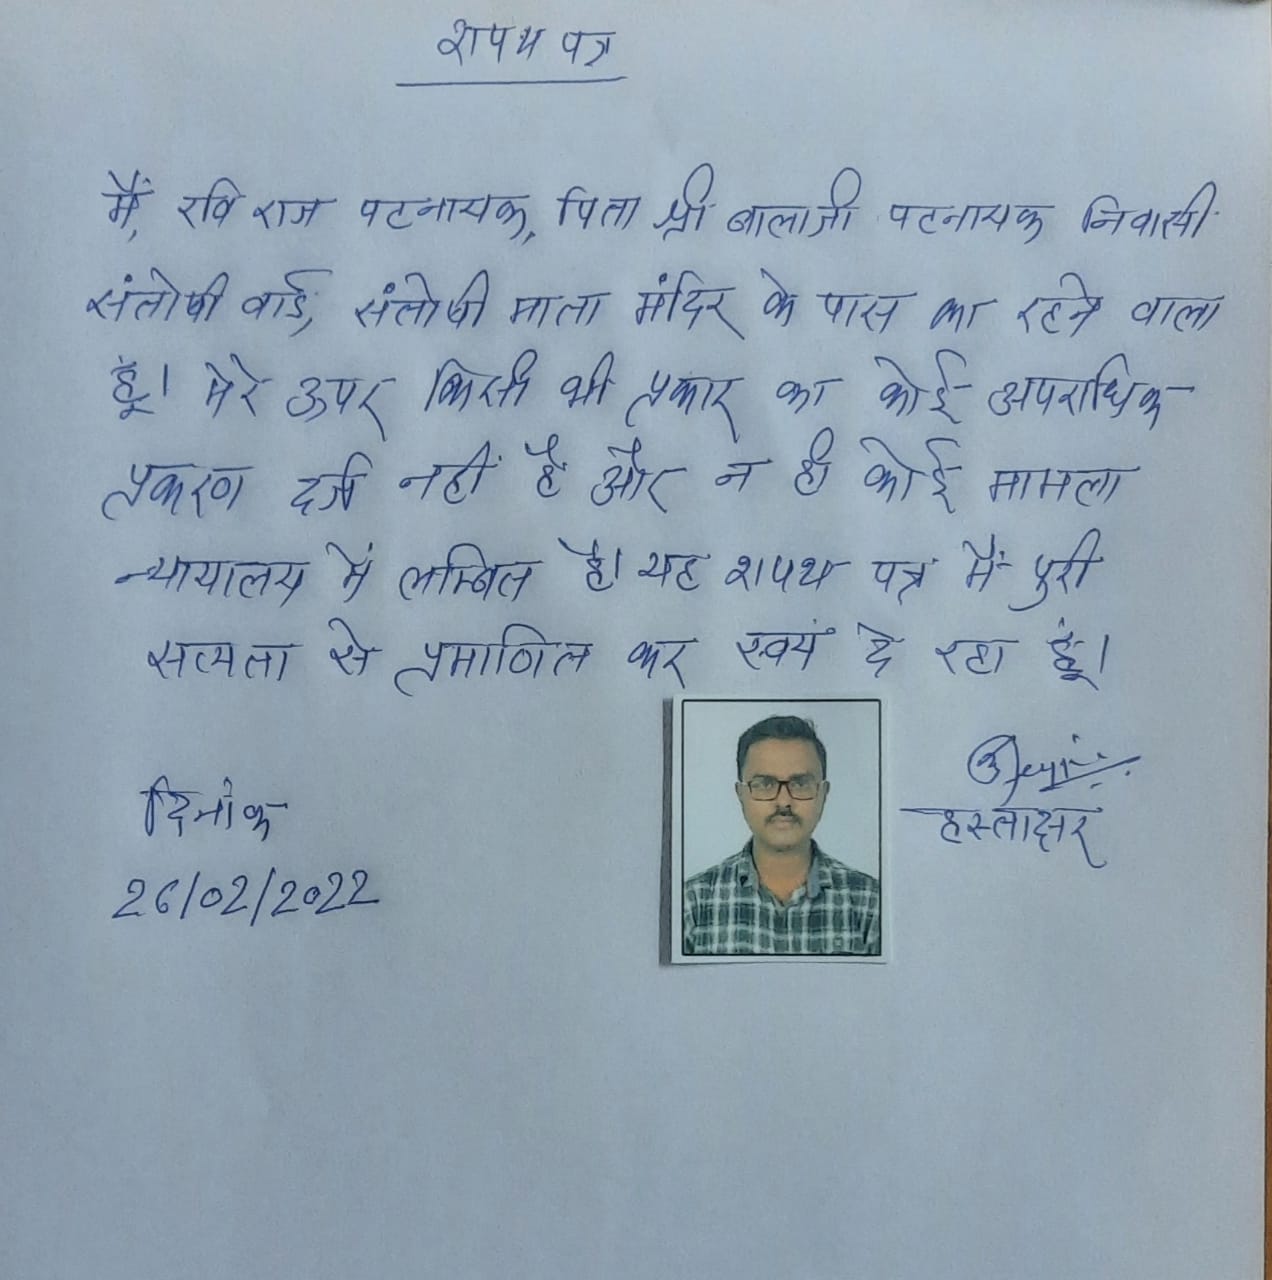 शपथ पत्र
मैं, रवि राज पटनायक, पिता श्री बालाजी पटनायक निवासी
संतोषी वार्ड, संतोषी माता मंदिर के पास का रहने वाला
हूं। मेरे ऊपर किसी भी प्रकार का कोई अपराधिक
प्रकरण दर्ज नहीं है और न ही कोई मामला
न्यायालय में लम्बित है। यह शपथ पत्र मैं पुरी
सत्यता से प्रमाणित कर स्वयं दे रहा हूं।
दिनांक
26/02/2022
हस्ताक्षर